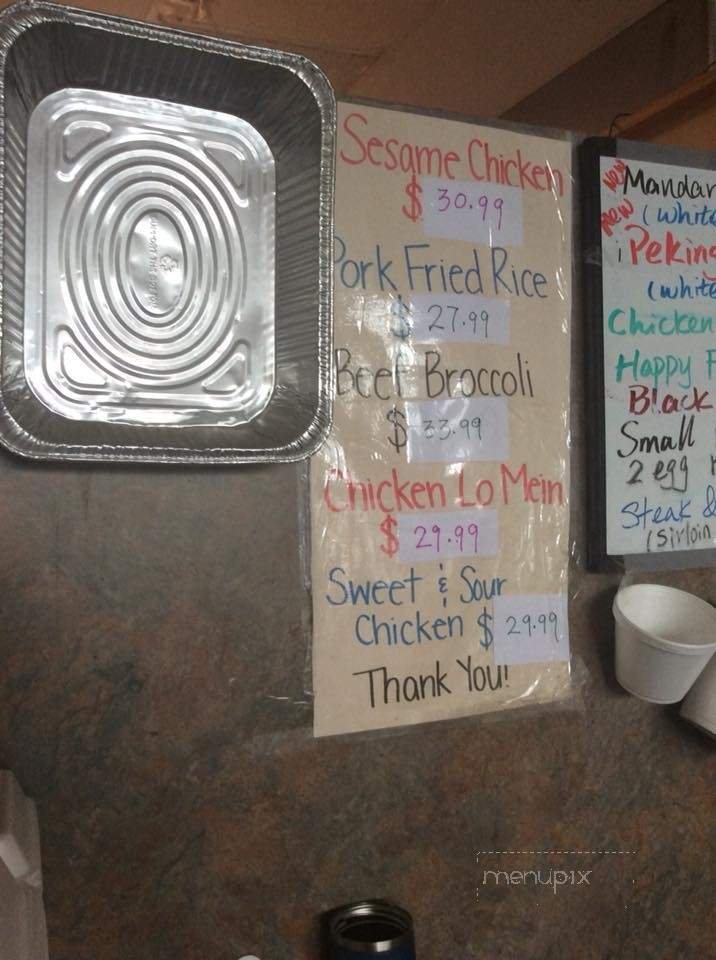 Sesame Chicken
$ 30.99
Pork Fried Rice
$ 27.99
Beef Broccoli
$ 33.99
Chicken Lo Mein
$ 29.99
Sweet & Sour
Chicken $ 29.99
Thank You!
New Mandar
New (white
Peking
(white
Chicken
Happy F
Black
Small
2 egg r
Steak &
(sirloin
menupix